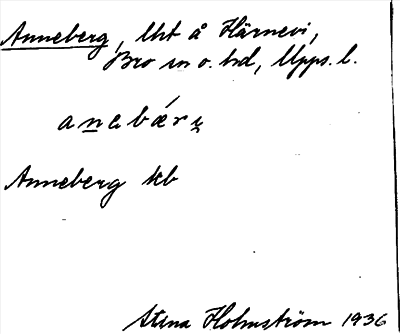 Anneberg, lht å Härnevi,
Bro sn o. hd, Upps. l.
anebǽrɩ̯
Anneberg kb
Stina Holmström 1936